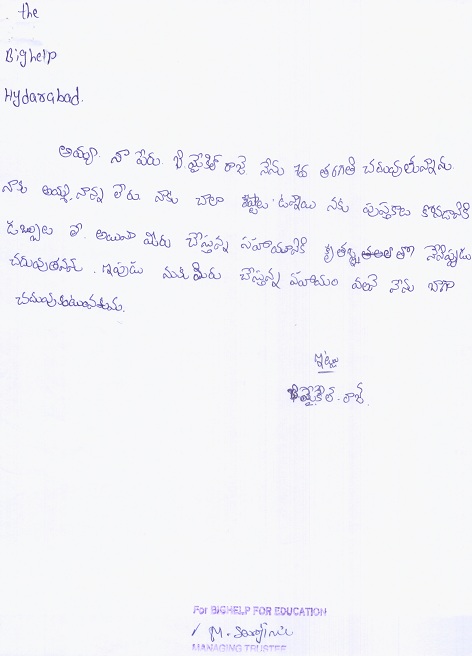 the
Bighelp
Hydarabad.
అయ్యా. నా పేరు. బి. మైకెల్ రాజ్ నేను తరగతి చదువుతున్నాను.
నాకు అమ్మ, నాన్న లేరు నాకు చాలా కష్టాలు ఉన్నాయి నకు పుస్తకాలు కొనడానికి
డబ్బులు లే. అయినా మీరు చేస్తున్న సహాయానికి కృతజ్ఞతలతో నేనిప్పుడు
చదువుతనను. ఇపుడు మీరు చేస్తున్న సహాయం వలన నేను బాగా
చదువుకుంటునతను.
ఇట్లు
బి మైకెల్. రాజ్.
For BIGHELP FOR EDUCATION
MANAGING TRUSTEE